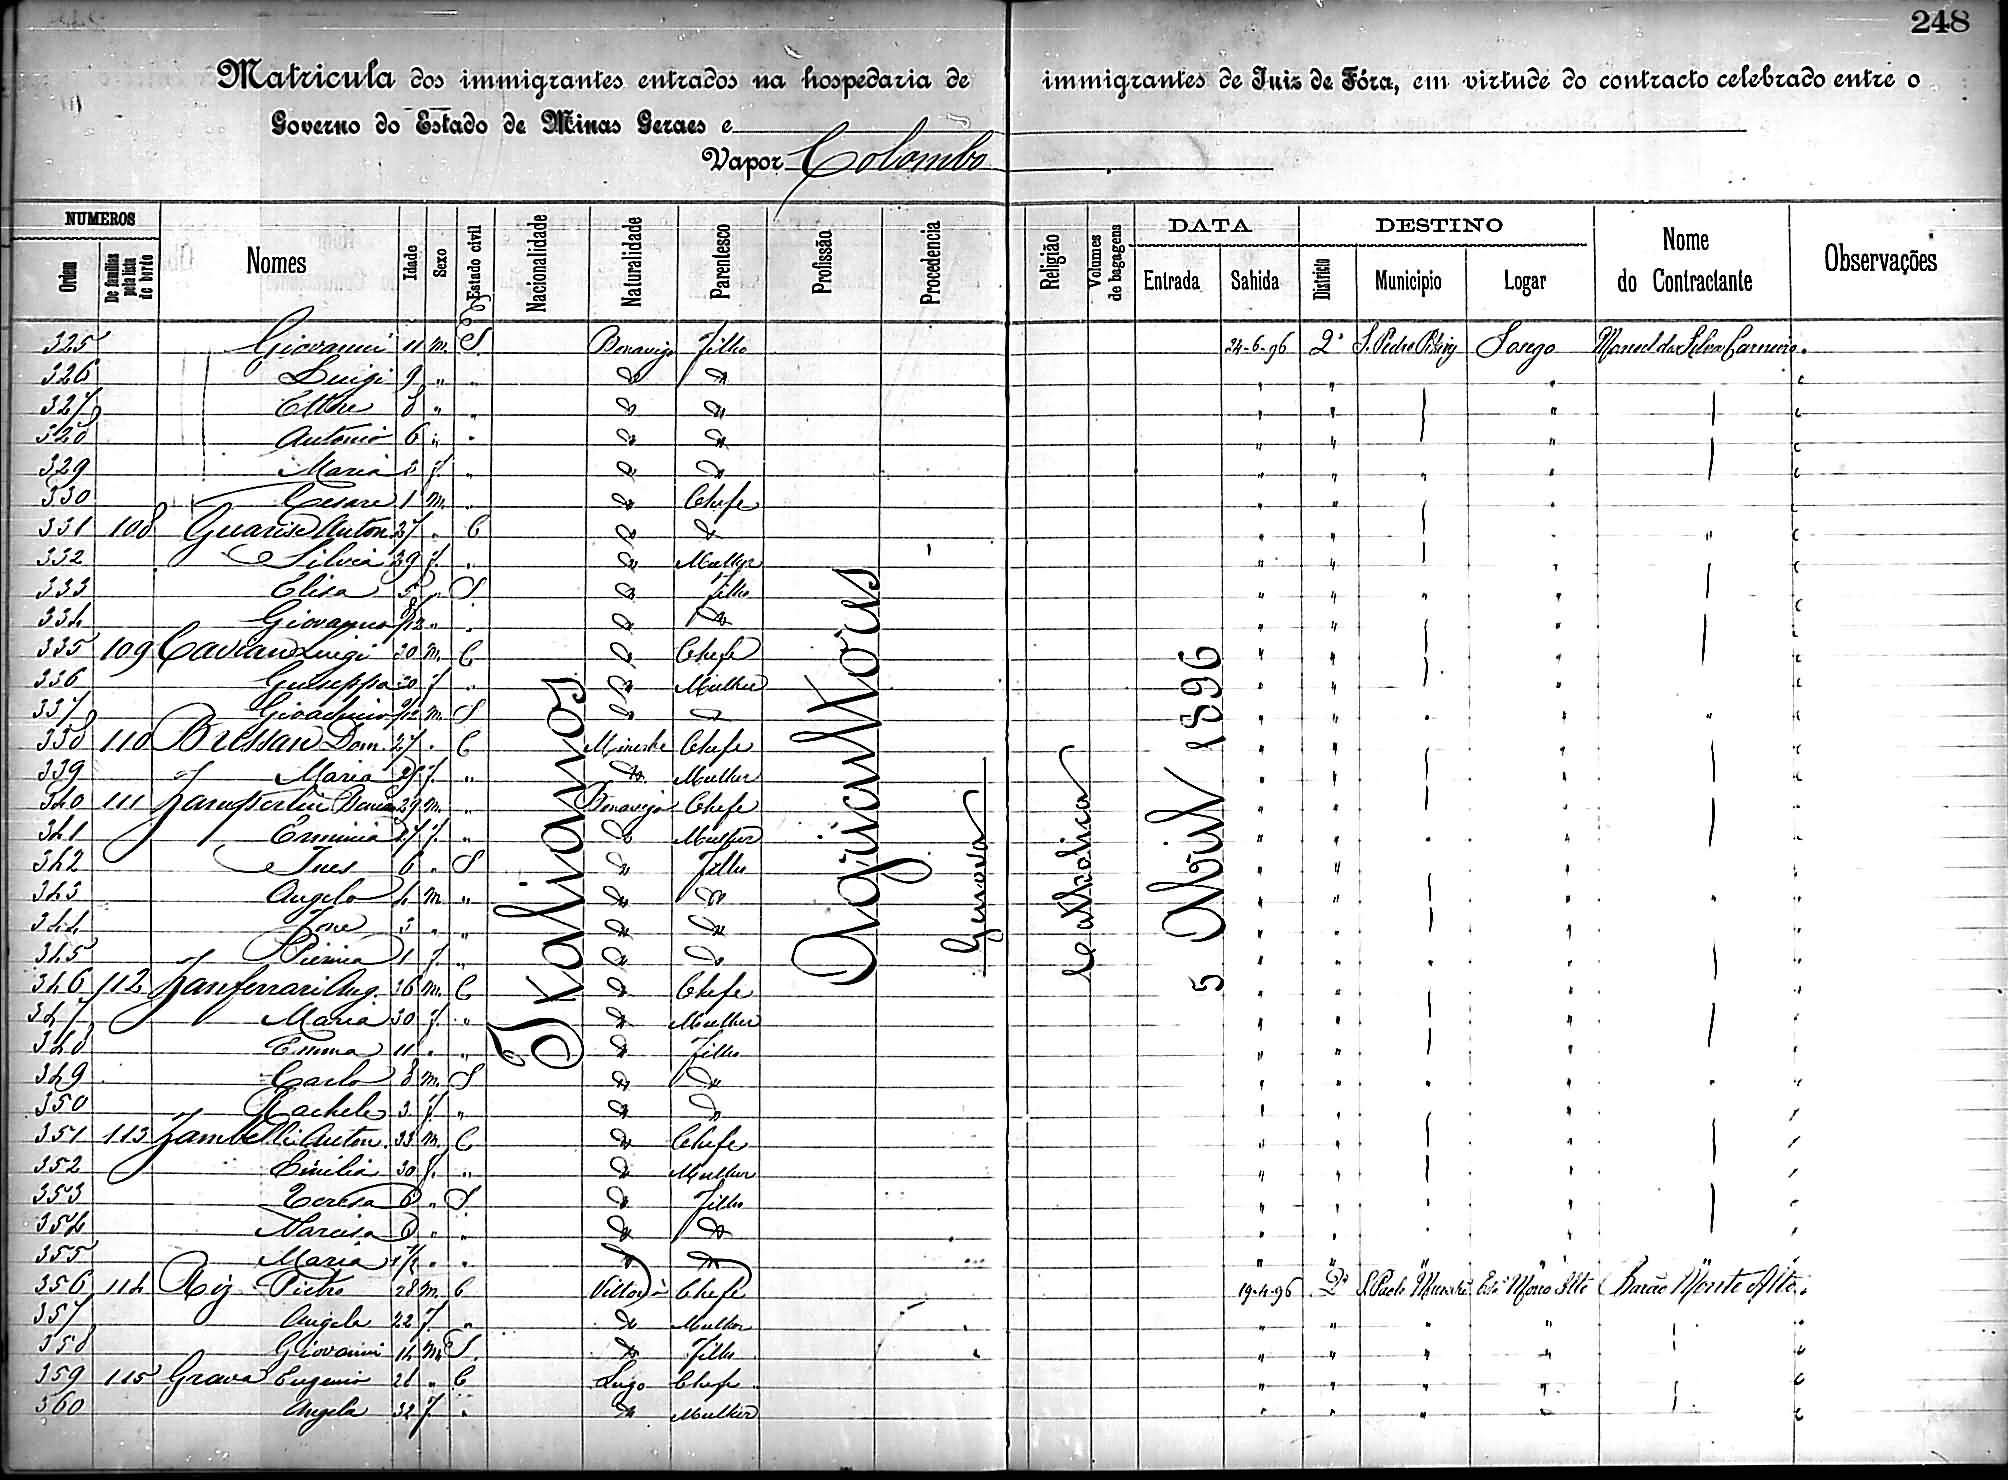 248
Matricula dos immigrantes entrados na hospedaria de immigrantes de Juiz de Fóra, em virtude do contracto celebrado entre o
Governo do Estado de Minas Geraes e
Vapor Colombo
NUMEROS
Ordem
De familias pela lista de bordo
Nomes
Idade
Sexo
Estado civil
Nacionalidade
Naturalidade
Parentesco
Profissão
Procedencia
Religião
Volumes de bagagens
DATA
Entrada
Sahida
DESTINO
Districto
Municipio
Logar
Nome do Contractante
Observações
Italianos
Agricultores
Genova
Catholica
5 Abril 1896
325 Giovanni 11 m. S Bonavigo Filho 24-6-96 2º S. Pedro Sosego Manoel da Silva Carneiro
326 Luigi 9 " " Do Do
327 Ettore 8 " " Do Do
328 Antonio 6 " " Do Do
329 Maria f. " Do Do
330 Cesare 1 m. " Do Chefe
331 108 Guarise Anton. 37 " C Do Do
332 Silvia 39 f. " Do Mulher
333 Elisa 5 " S Do Filho
334 Giovanna " " Do Do
335 109 Cavian Luigi 30 m. C Do Chefe
336 Guiseppa 30 f " Do Mulher
337 Gioachino m. S Do Do
338 110 Bressan Dom. 27 " C Minerbe Chefe
339 Maria 27 f. " Do Mulher
340 111 29 m. " Bonavigo Chefe
341 Erminia 27 f. " Do Mulher
342 Ines 6 " S Do Filho
343 Angelo 4 m " Do Do
344 3 " " Do Do
345 Pierina 1 f. " Do Do
346 112 Zanferrari Aug. 36 m. C Do Chefe
347 Maria 30 f. " Do Mulher
348 Emma 11 " " Do Filho
349 Carlo 8 m. S Do Do
350 Rachele 3 f. " Do Do
351 113 Zambelli Anton. 33 m. C Do Chefe
352 Emilia 30 f. " Do Mulher
353 Teresa 6 " S Do Filho
354 Narcisa " " Do Do
355 Maria " " Do Do
356 114 Riz Pietro 28 m. C Vittorio Chefe 19-4-96 2º S. Paulo Muriahé Morro Alto Barão Monte Alto
357 Angela 22 f. " Do Mulher
358 Giovanni 14 m. S. Do Filho
359 115 Grava Eugenio 26 " C Lugo Chefe
360 Angela 32 f " Do Mulher